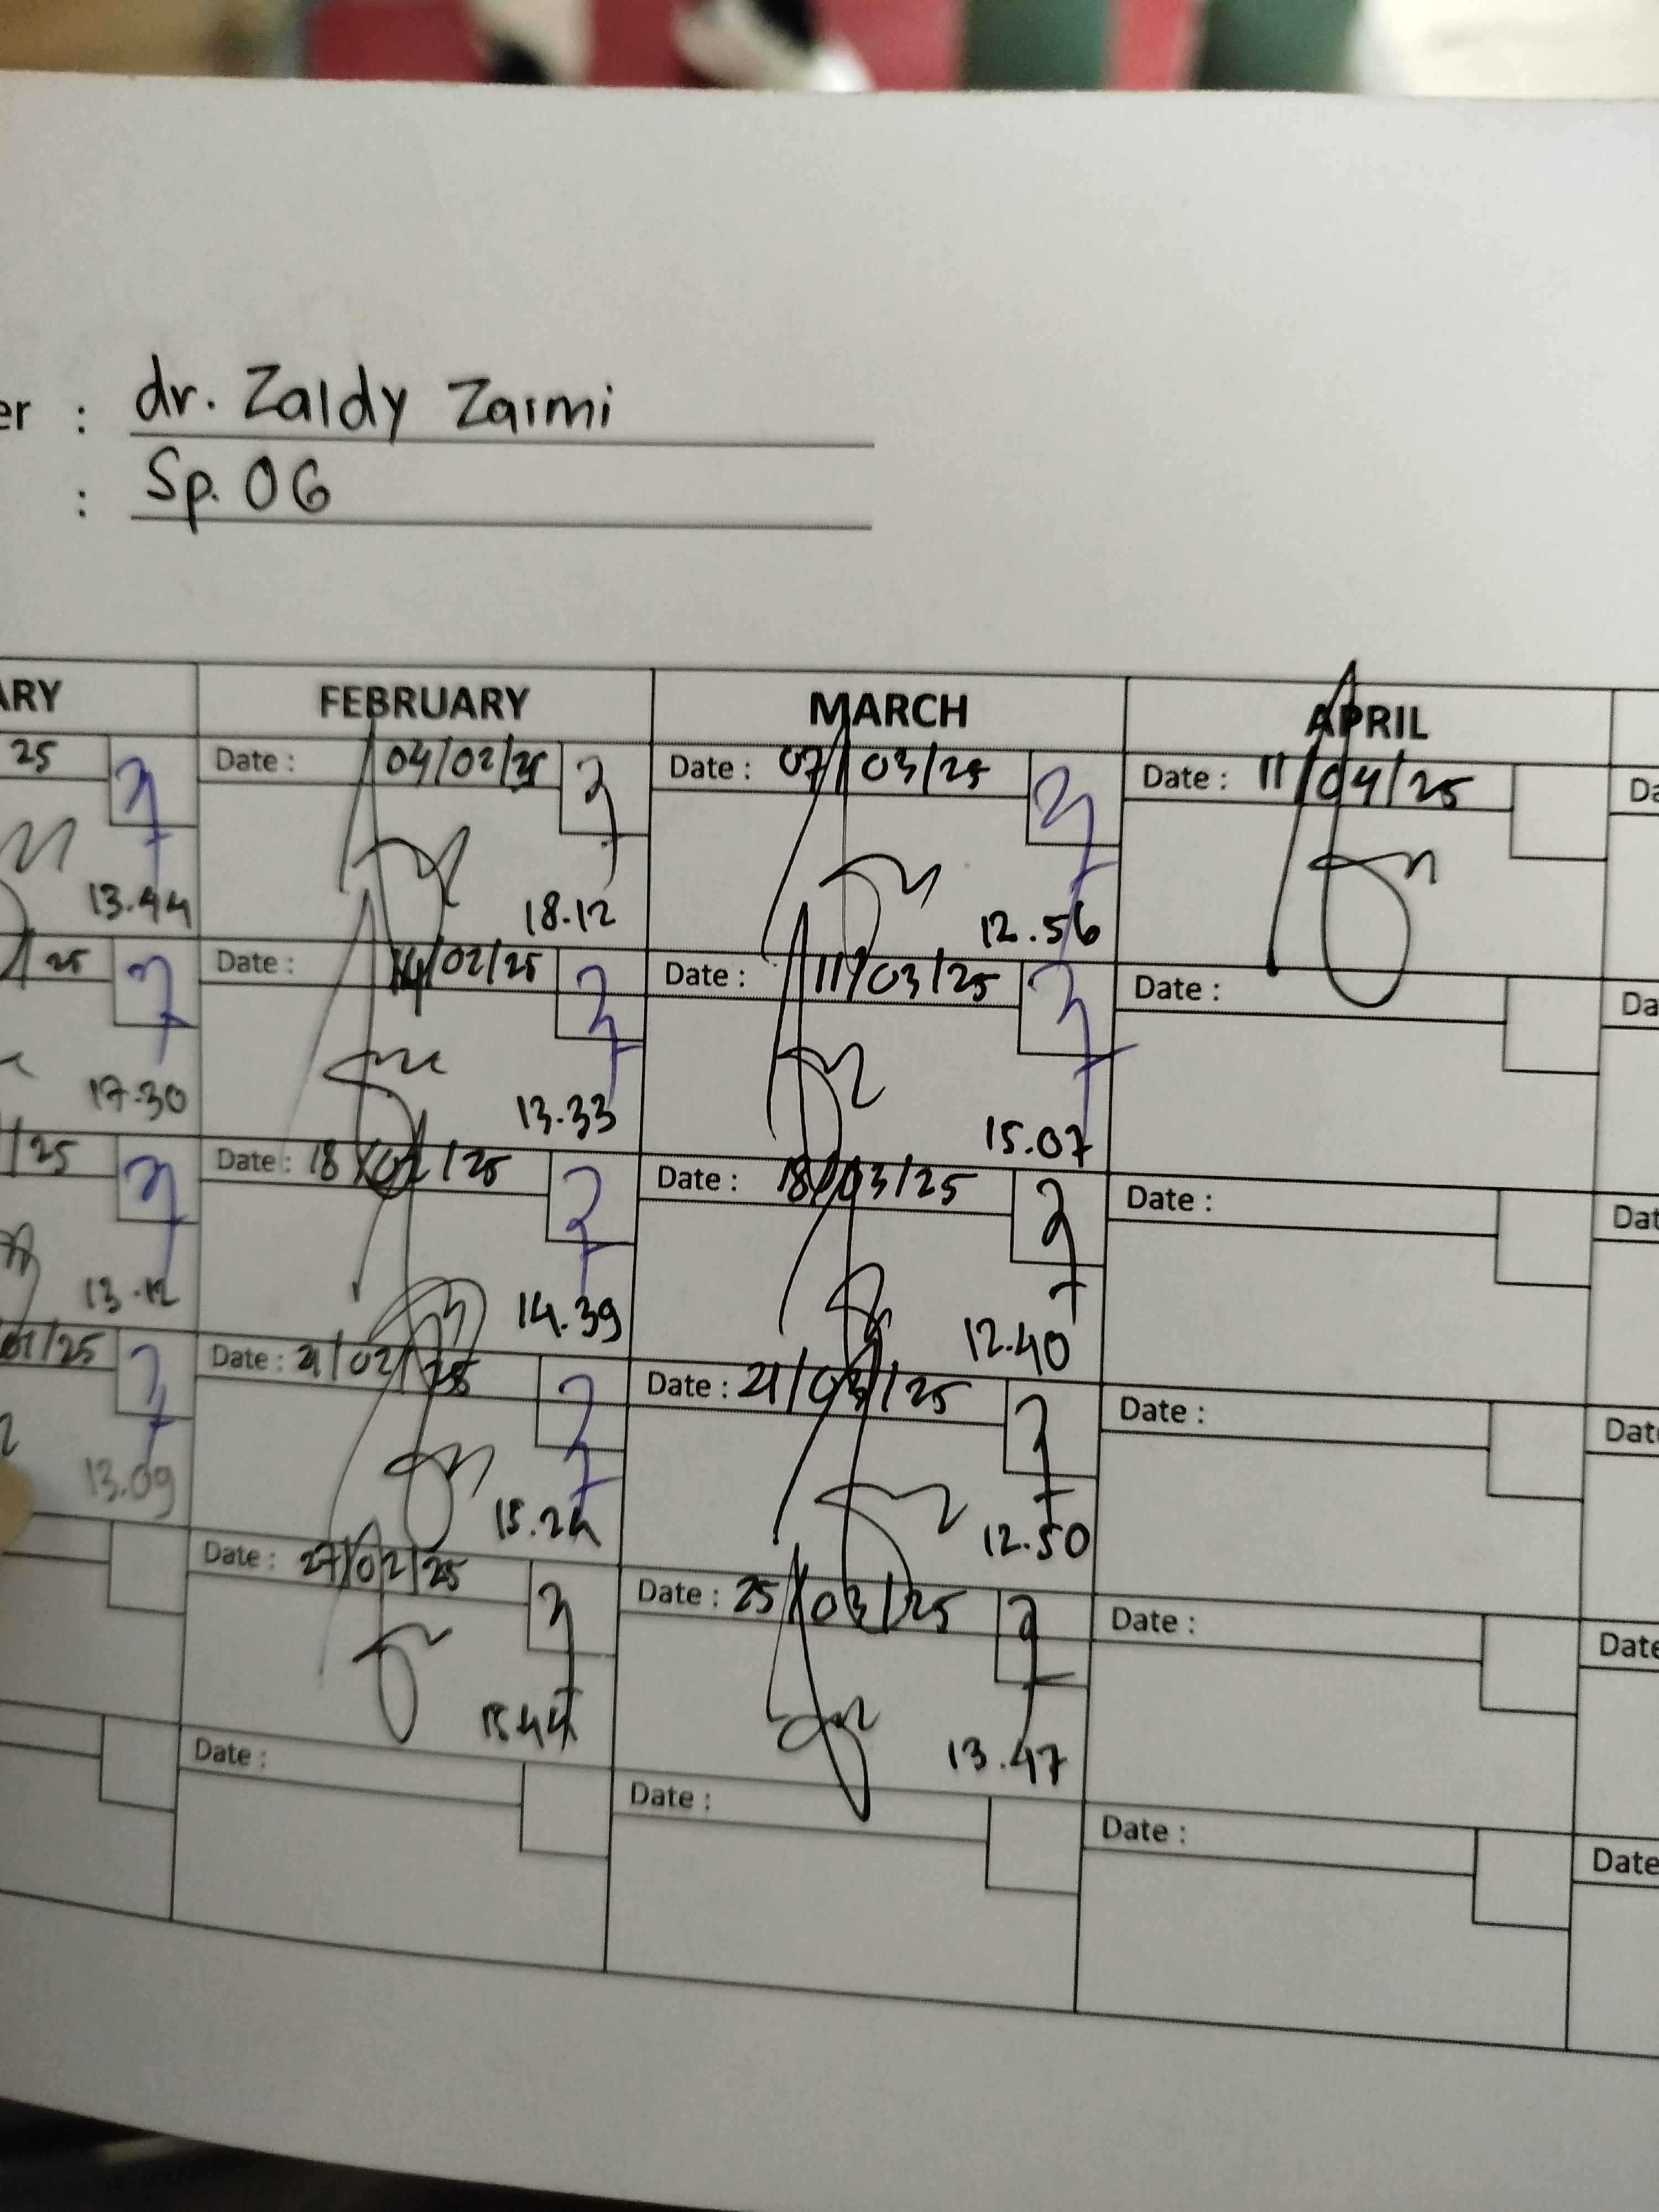 er : dr. Zaldy Zarmi
: Sp. OG
ARY FEBRUARY MARCH APRIL
25 Date : 04/02/25 Date : 07/03/25 Date : 11/04/25 Da
13.44 18.12 12.56
25 Date : 14/02/25 Date : 11/03/25 Date : Da
17.30 13.33 15.07
/25 Date : 18/02/25 Date : 18/03/25 Date : Dat
13.12 14.39 12.40
01/25 Date : 21/02/25 Date : 21/03/25 Date : Date
13.09 15.24 12.50
Date : 27/02/25 Date : 25/03/25 Date : Date
15.44 13.47
Date : Date : Date : Date